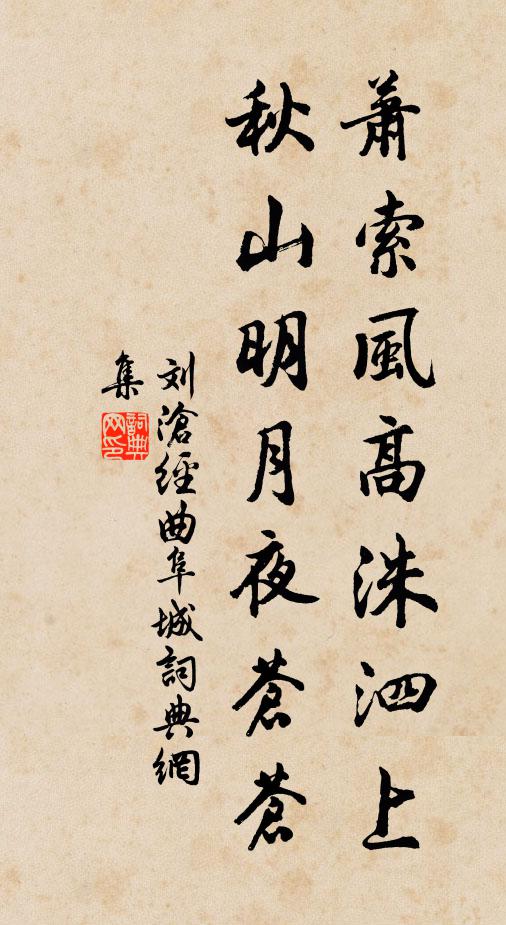 蕭索風高洙泗上
秋山明月夜蒼蒼
刘滄經曲阜城詞典網
集
詞典網印